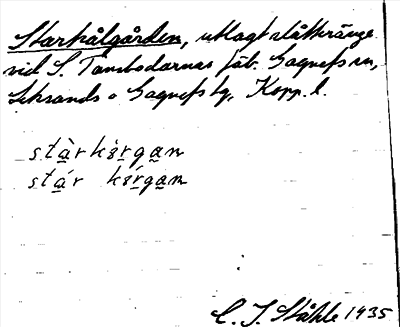 Starhålgården, utlagt slåtteränge
vid S. Tansbodarnas fäb. Gagnefs sn,
Leksands o Gagnefs tg, Kopp. l.
stàrkŏrgan
stár kŏ́rgan
C. I. Ståhle 1935